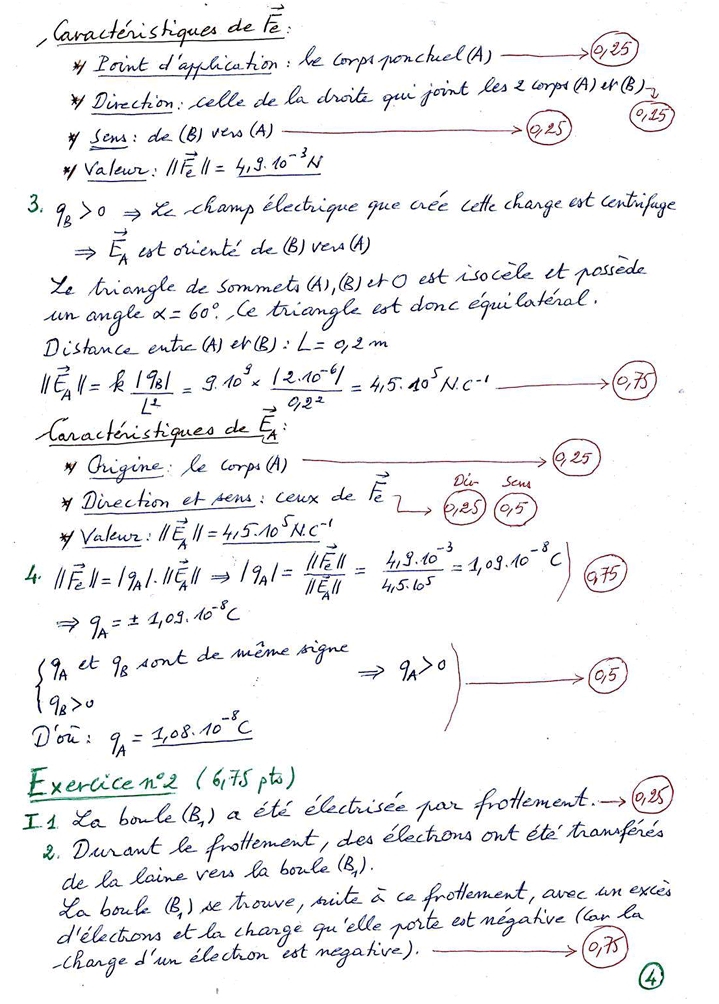 Caractéristiques de F⃗e:
* Point d'application : le corps ponctuel (A) → 0,25
* Direction : celle de la droite qui joint les 2 corps (A) et (B) → 0,25
* Sens : de (B) vers (A) → 0,25
* Valeur : ||F⃗e|| = 4,9.10⁻³ N
3. q_B > 0 ⇒ Le champ électrique que crée cette charge est centrifuge
⇒ E⃗_A est orienté de (B) vers (A)
Le triangle de sommets (A), (B) et O est isocèle et possède
un angle α = 60°. Ce triangle est donc équilatéral.
Distance entre (A) et (B) : L = 0,2 m
||E⃗_A|| = k |q_B| / L² = 9.10⁹ × |2.10⁻⁶| / 0,2² = 4,5.10⁵ N.C⁻¹ → 0,75
Caractéristiques de E⃗_A:
* Origine : le corps (A) → 0,25
* Direction et sens : ceux de F⃗e → Dir 0,25 Sens 0,5
* Valeur : ||E⃗_A|| = 4,5.10⁵ N.C⁻¹
4. ||F⃗e|| = |q_A|.||E⃗_A|| ⇒ |q_A| = ||F⃗e|| / ||E⃗_A|| = 4,9.10⁻³ / 4,5.10⁵ = 1,09.10⁻⁸ C ) 0,75
⇒ q_A = ± 1,09.10⁻⁸ C
{ q_A et q_B sont de même signe
q_B > 0 ⇒ q_A > 0 ) → 0,5
D'où : q_A = 1,08.10⁻⁸ C
Exercice n°2 (6,75 pts)
I.1 La boule (B₁) a été électrisée par frottement. → 0,25
2. Durant le frottement, des électrons ont été transférés
de la laine vers la boule (B₁).
La boule (B₁) se trouve, suite à ce frottement, avec un excès
d'électrons et la charge qu'elle porte est négative (car la
charge d'un électron est negative). → 0,75
4